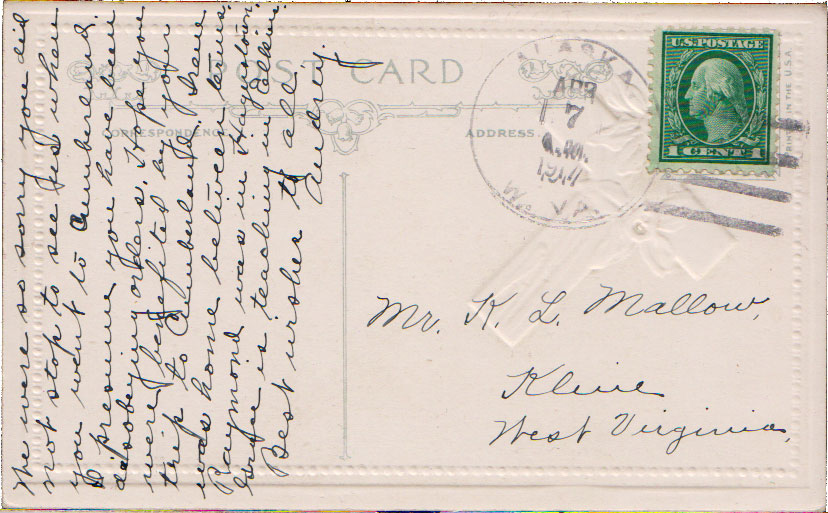 POST CARD
CORRESPONDENCE
ADDRESS.
ALASKA
APR
7
A.M.
1917
W. VA.
U.S. POSTAGE
1 CENT 1
IN THE U.S.A.
We were so sorry you did
not stop to see us when
you went to Cumberland.
I presume you have been
disobeying orders. Hope you
were benefited by your
trip to Cumberland. Irene
was home between terms.
Raymond was in Hagerstown.
is teaching in Elkins.
Best wishes to all.
Audrey.
Mr. K. L. Mallow,
Kline
West Virginia,